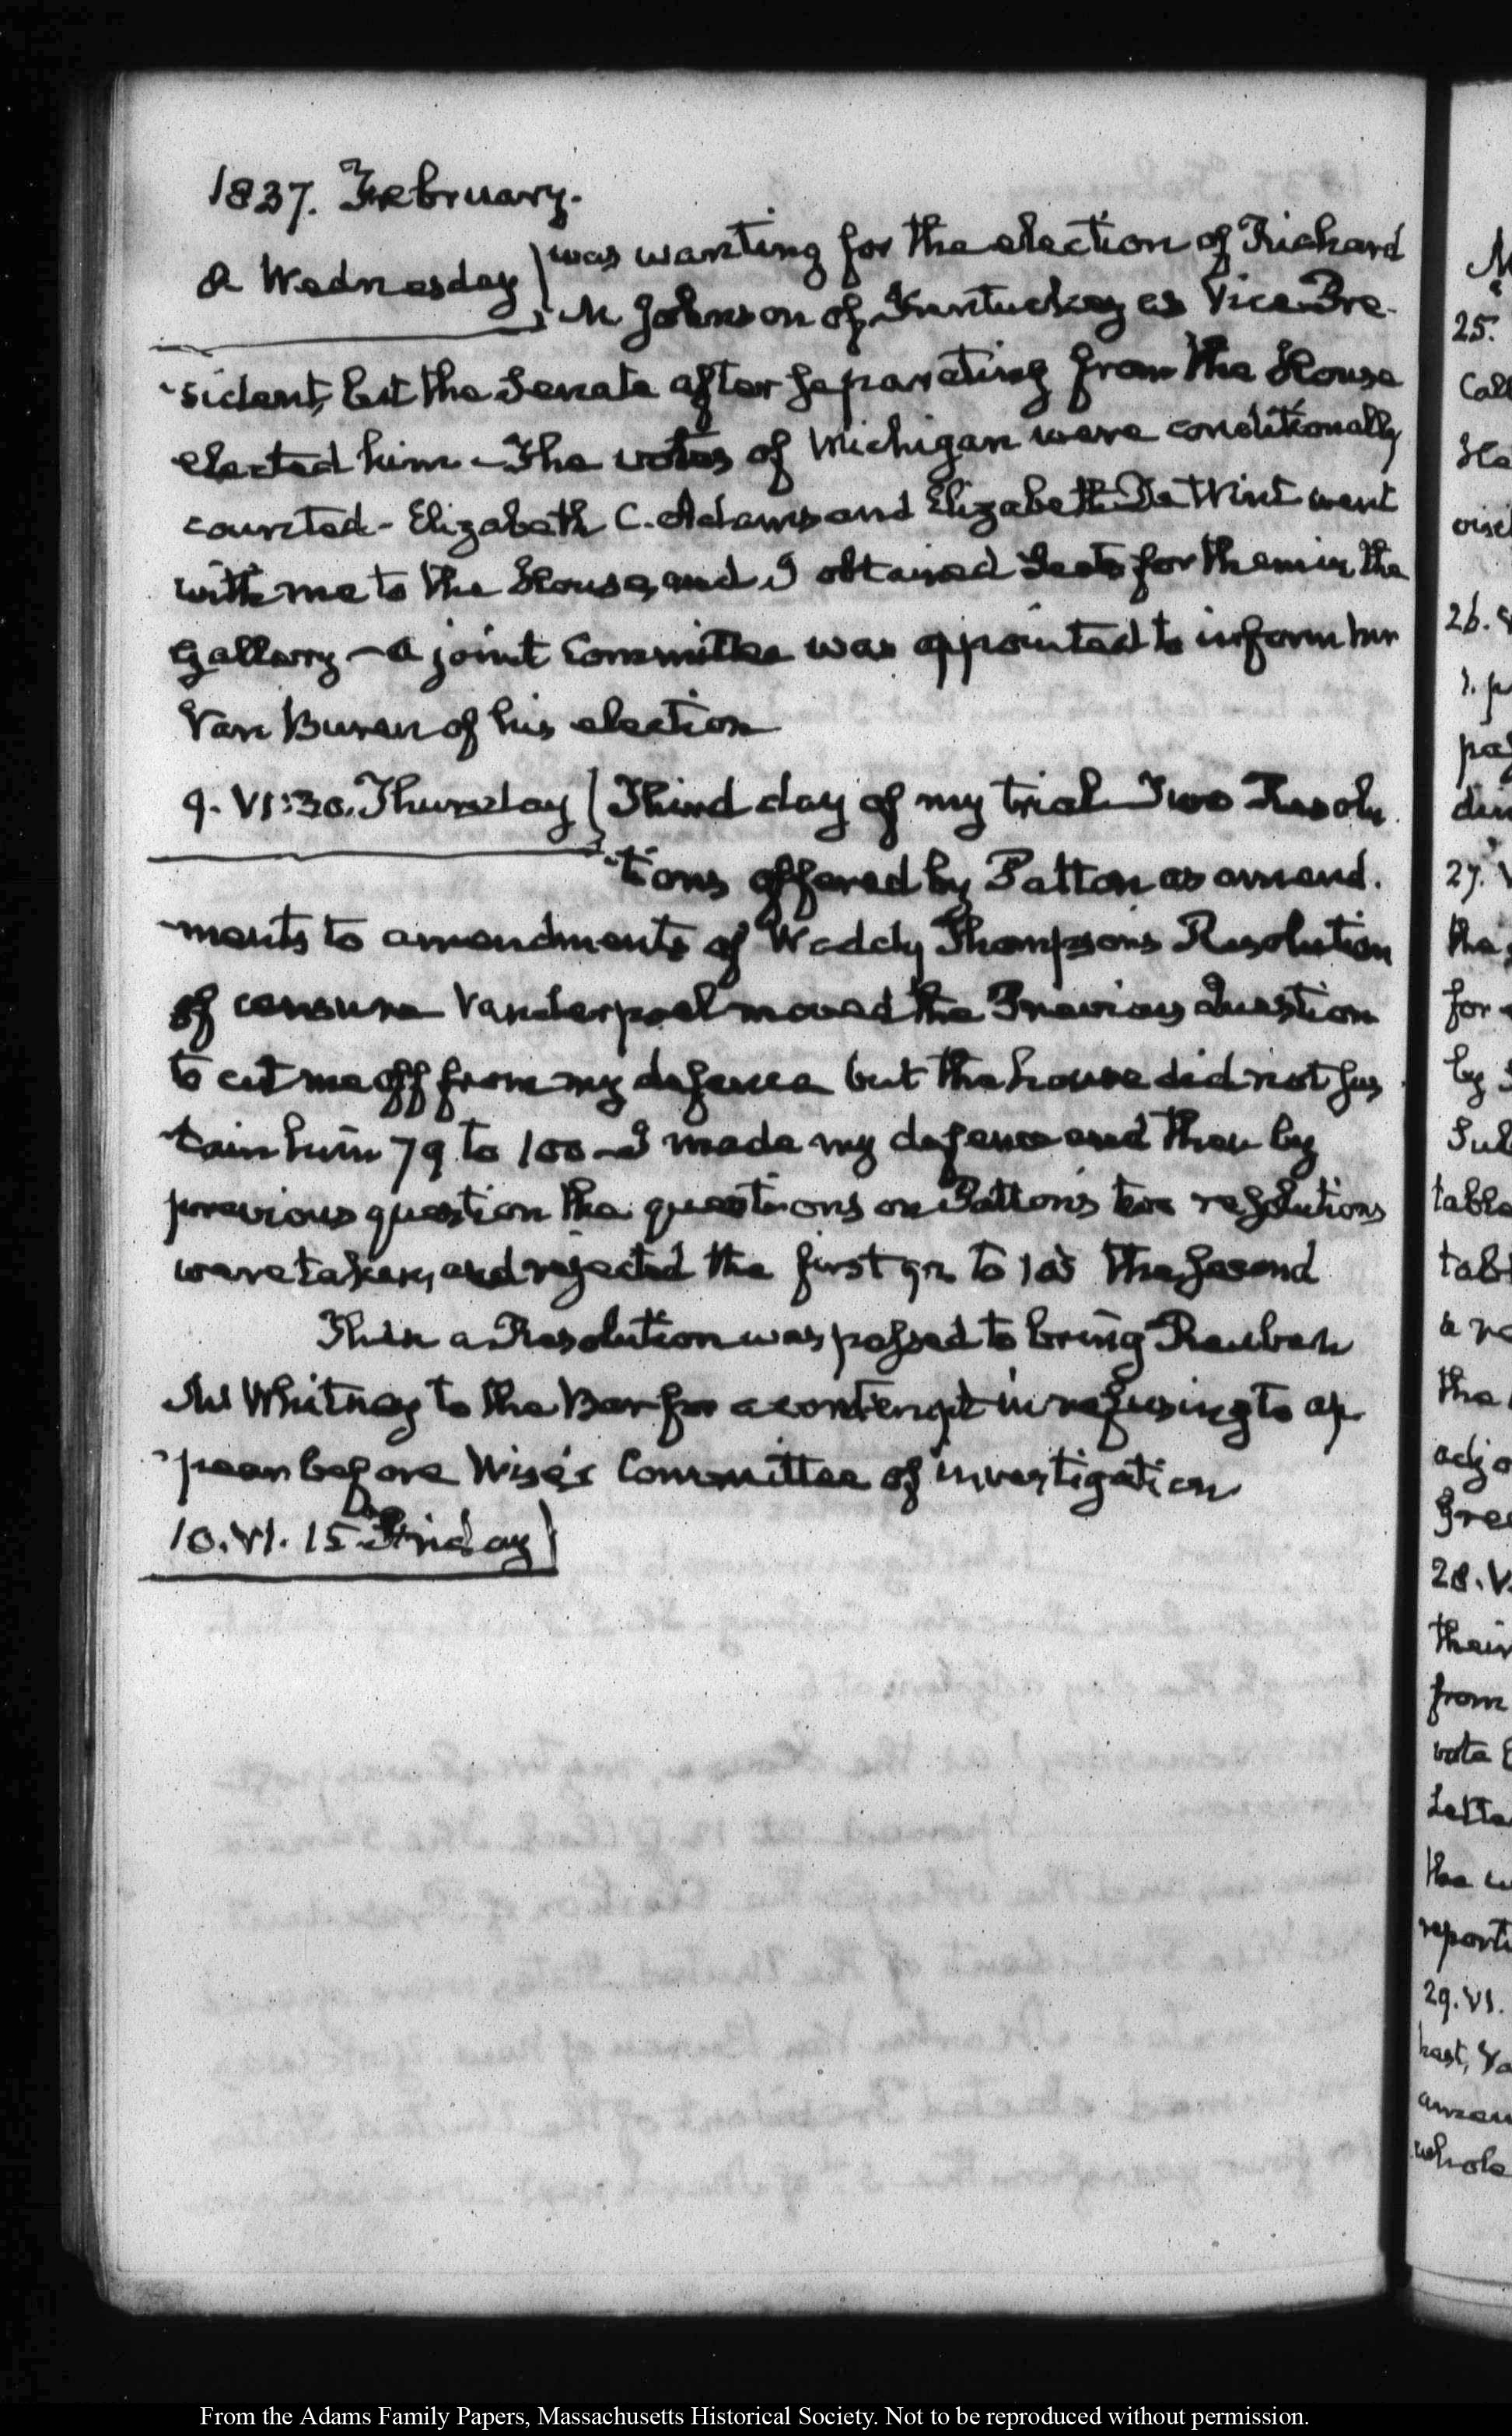 1837. February.
8 Wednesday } was wanting for the election of Richard
M Johnson of Kentucky as Vice Pre-
-sident, but the Senate after separating from the House
elected him - The votes of Michigan were conditionally
counted - Elizabeth C. Adams and Elizabeth De Wint went
with me to the House, and I obtained seats for them in the
gallery - a joint Committee was appointed to inform Mr
Van Buren of his election
9. VI:30. Thursday } Third day of my trial Two Resolu
-tions offered by Patton as amend-
-ments to amendments of Waddy Thompson's Resolution
of censure Vanderpoel moved the Previous Question
to cut me off from my defence but the house did not sus
-tain him 79 to 100 - I made my defence and then by
previous question the questions on Patton's two resolutions
were taken, and rejected the first 92 to 105 the second
Then a Resolution was passed to bring Reuben
M Whitney to the Bar for a contempt in refusing to ap
-pear before Wise's Committee of investigation
10. VI. 15 Friday }
25.
Call
26.
27.
the
for
by
Sub
table
tabl
the
adjo
28. V.
their
from
vote
Lette
the w
reporti
29. VI.
whole
From the Adams Family Papers, Massachusetts Historical Society. Not to be reproduced without permission.